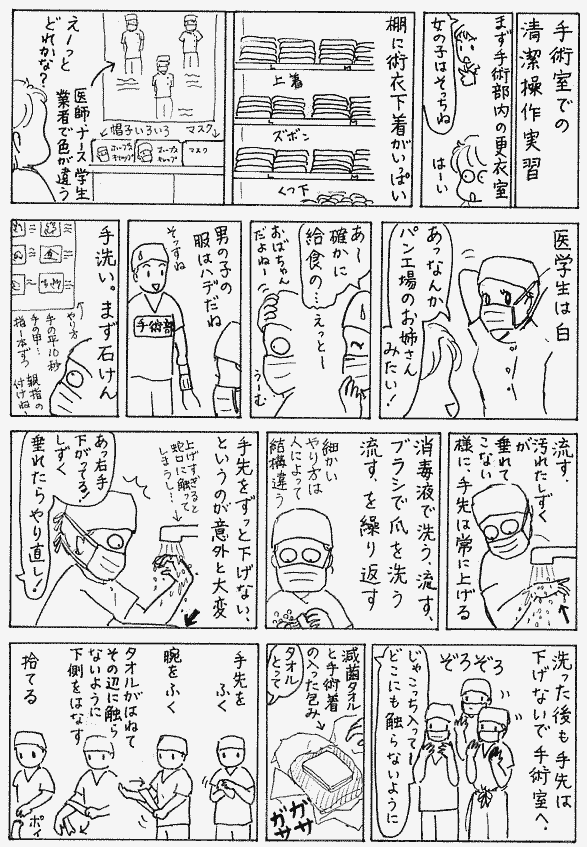 手術室での
清潔操作実習
まず手術部内の更衣室
女の子はそっちね
はーい
棚に術衣下着がいっぱい
上着
ズボン
くつ下
えーっと
どれかな?
医師・ナース・学生
業者で色が違う
帽子いろいろ
マスク
マスク
医学生は白
あっなんか
パン工場のお姉さん
みたい!
あ〜
確かに
給食の…えっとー
おばちゃん
だよねー
うーむ
男の子の
服はハデだね
そっすね
手術部
手洗い。まず石けん
やり方
手の平10秒
手の甲…
指一本ずつ
親指の
付けね
流す.
汚れたしずく
が垂れて
こない
様に、手先は常に上げる
消毒液で洗う、流す、
ブラシで爪を洗う
流す、を繰り返す
細かい
やり方は
人によって
結構違う
手先をずっと下げない、
というのが意外と大変
上げすぎると
蛇口に触って
しまうし…
あっ右手
下がってる!
しずく
垂れたらやり直し!
洗った後も手先は
下げないで手術室へ.
ぞろぞろ
じゃこっち入ってー
どこにも触らないように
滅菌タオル
と手術着
の入った包み
タオル
とって
ガサ
ガサ
手先を
ふく
腕をふく
タオルがはねて
その辺に触ら
ないように
下側をはなす
捨てる
ポイ